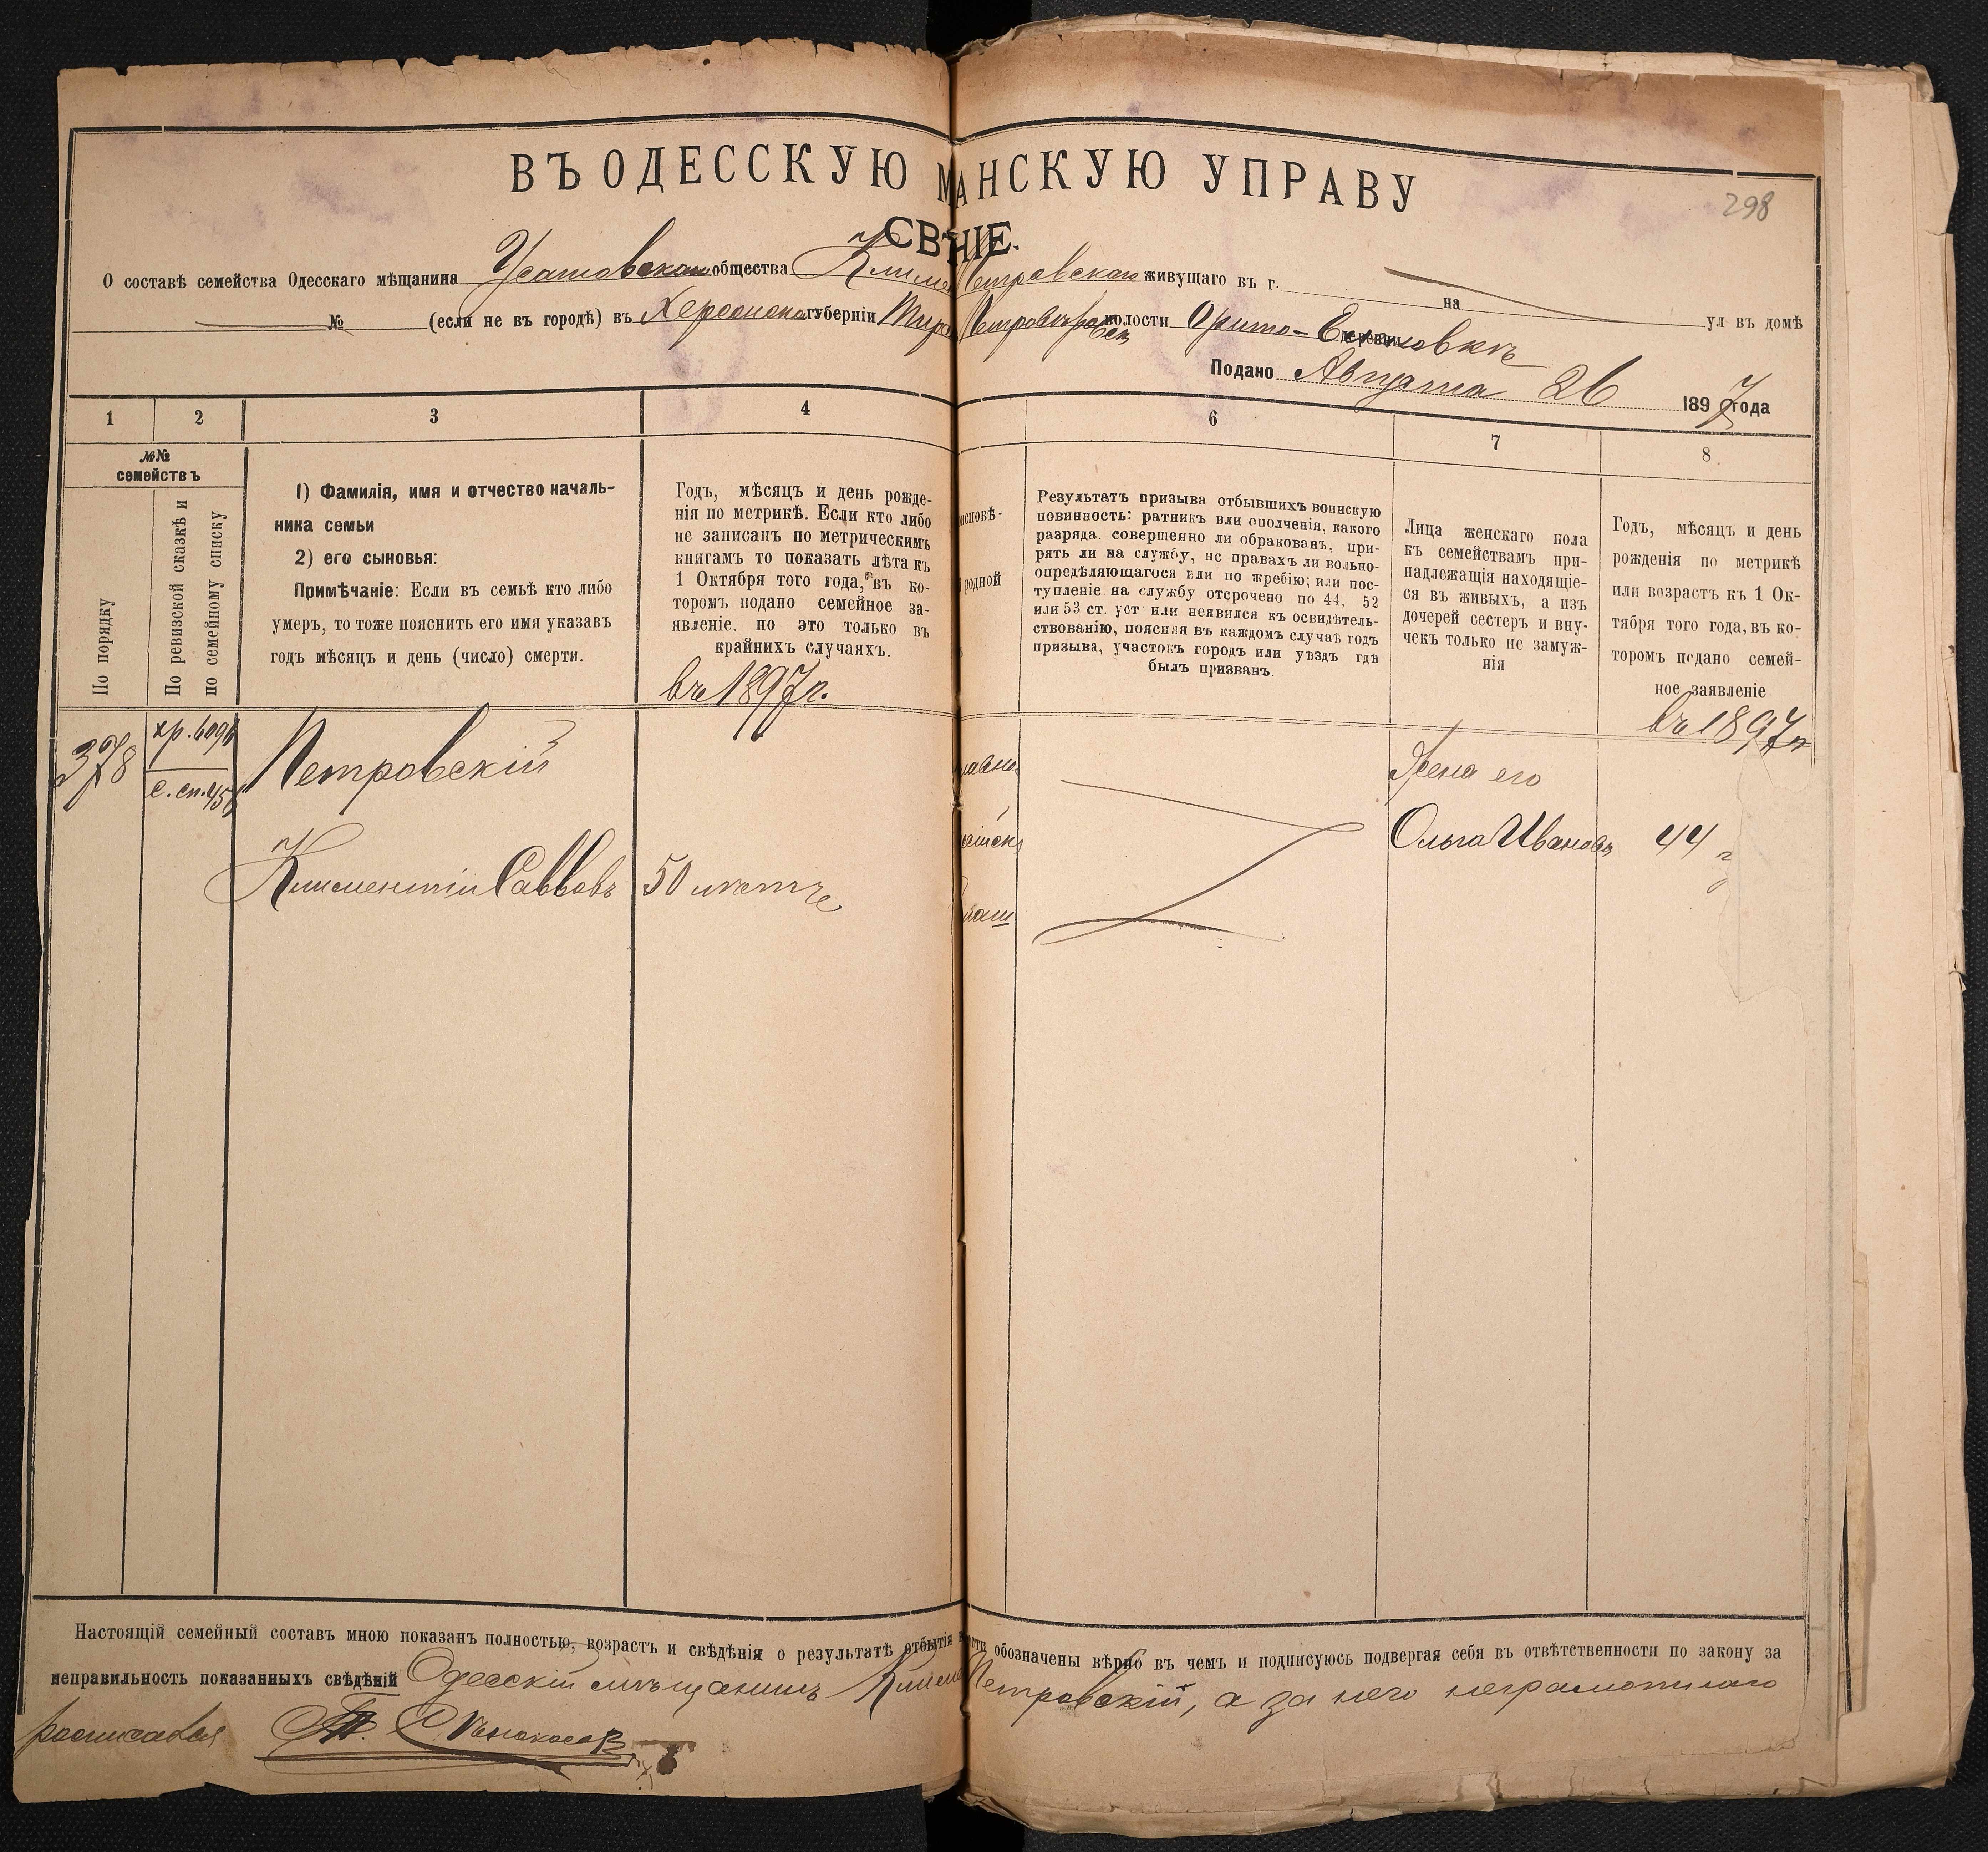 298
ВЪ ОДЕССКУЮ М АНСКУЮ УПРАВУ
СВ НІЕ.
О составѣ семейства Одесскаго мѣщанина Усатовскаго общества Климе Петровскаго живущаго въ г. на ул въ домѣ
№ (если не въ городѣ) въ Херсонской губерніи Тирас Петровѣровск волости деревни
Подано Августа 26 1897 года
1 2 3 4 6 7 8
№№ семействъ
По порядку
По ревизской сказкѣ и по семейному списку
1) Фамилія, имя и отчество началь-
ника семьи
2) его сыновья:
Примѣчаніе: Если въ семьѣ кто либо
умеръ, то тоже пояснить его имя указавъ
годъ мѣсяцъ и день (число) смерти.
Годъ, мѣсяцъ и день рожде-
нія по метрикѣ. Если кто либо
не записанъ по метрическимъ
книгамъ то показать лѣта къ
1 Октября того года, въ ко-
торомъ подано семейное за-
явленіе. но это только въ
крайнихъ случаяхъ.
въ 1897 г.
исповѣ-
родной
Результатъ призыва отбывшихъ воинскую
повинность: ратникъ или ополченія, какого
разряда. совершенно ли обракованъ, при-
рять ли на службу, нс правахъ ли вольно-
опредѣляющагося или по жребію; или пос-
тупленіе на службу отсрочено по 44, 52
или 53 ст. уст или неявился къ освидѣтель-
ствованію, поясняя въ каждомъ случаѣ годъ
призыва, участокъ городъ или уѣздъ гдѣ
былъ призванъ.
Лица женскаго пола
къ семействамъ при-
надлежащія находящіе-
ся въ живыхъ, а изъ
дочерей сестеръ и вну-
чекъ только не замуж-
нія
Годъ, мѣсяцъ и день
рожденія по метрикѣ
или возрастъ къ 1 Ок-
тября того года, въ ко-
торомъ подано семей-
ное заявленіе
въ 1897 г
378
с. сп. 456
Петровскій
Климентій Саввовъ
50 лѣтъ
Жена его
Ольга Иванова
44
Настоящій семейный составъ мною показанъ полностью, возрастъ и свѣдѣнія о результатѣ отбытія в ости обозначены вѣрно въ чемъ и подписуюсь подвергая себя въ отвѣтственности по закону за
неправильность показанныхъ свѣдѣній Одесскій мѣщанинъ Климе Петровскій, а за него неграмотнаго
росписався